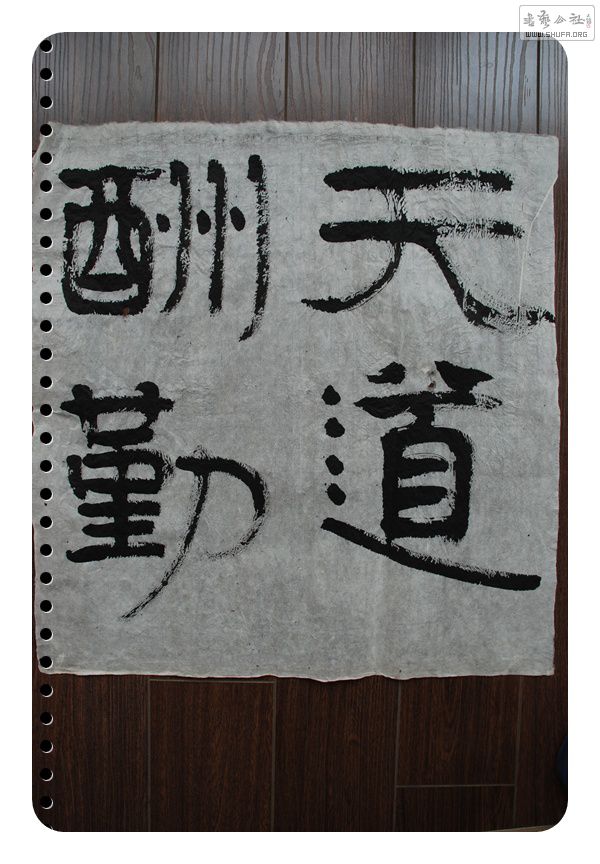 天道
酬勤
书艺公社
WWW.SHUFA.ORG